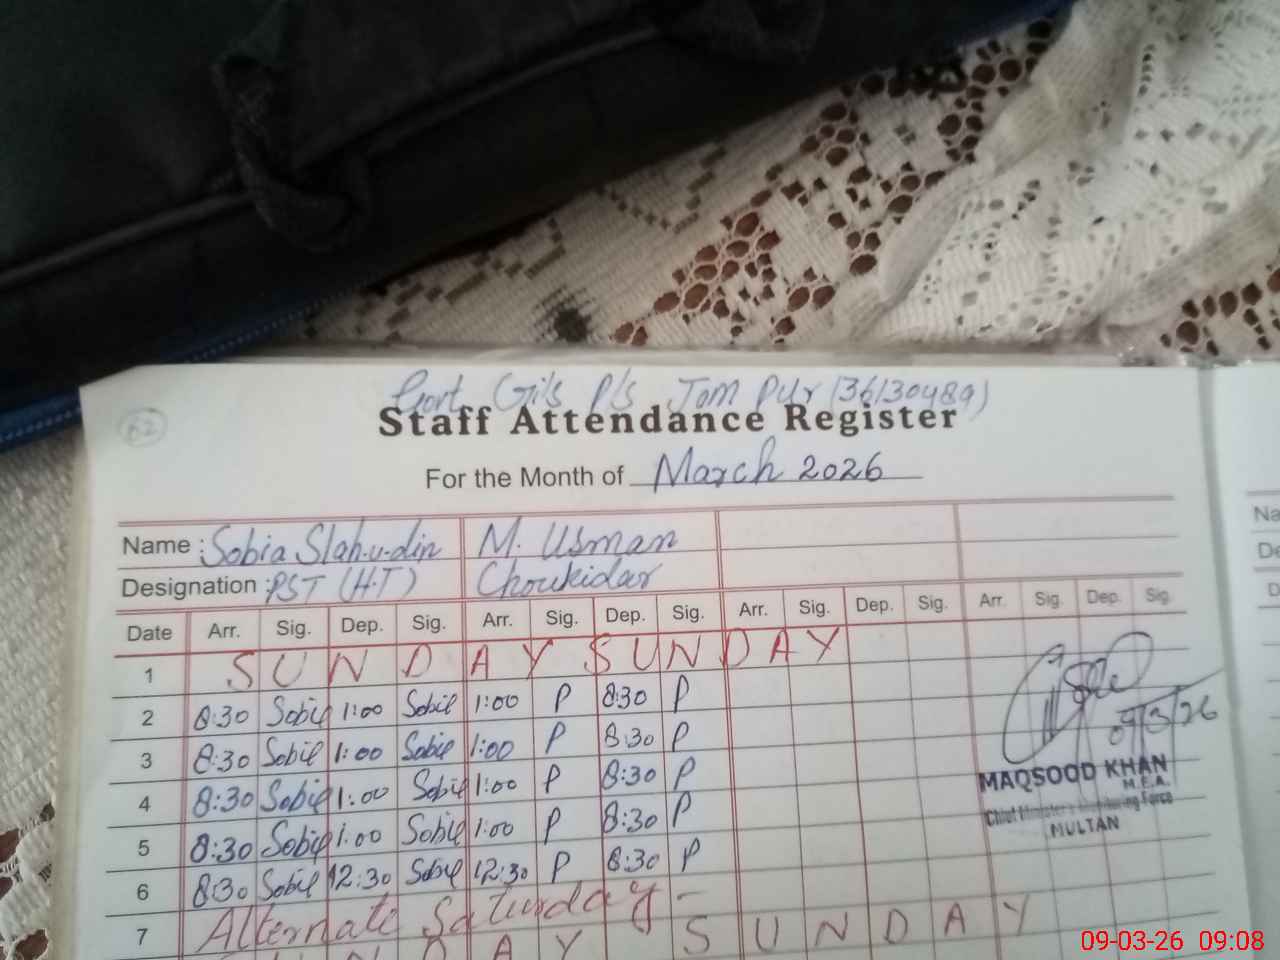 Govt Girls P/s Jom Pur (36130489)
R2
Staff Attendance Register
For the Month of March 2026
Name : Sobia Slah-u-din M. Usman
Designation : PST (H.T) Choukidar
Date Arr. Sig. Dep. Sig. Arr. Sig. Dep. Sig. Arr. Sig. Dep. Sig. Arr. Sig. Dep. Sig.
1 SUNDAY SUNDAY
2 8:30 Sobia 1:00 Sobia 1:00 P 8:30 P
3 8:30 Sobia 1:00 Sobia 1:00 P 8:30 P
4 8:30 Sobia 1:00 Sobia 1:00 P 8:30 P
5 8:30 Sobia 1:00 Sobia 1:00 P 8:30 P
6 8:30 Sobia 12:30 Sobia 12:30 P 8:30 P
7 Alternate Saturday -
SUNDAY SUNDAY
9/3/26
MAQSOOD KHAN
M.E.A.
Chief Minister's Monitoring Force
MULTAN
Na
De
D
09-03-26 09:08